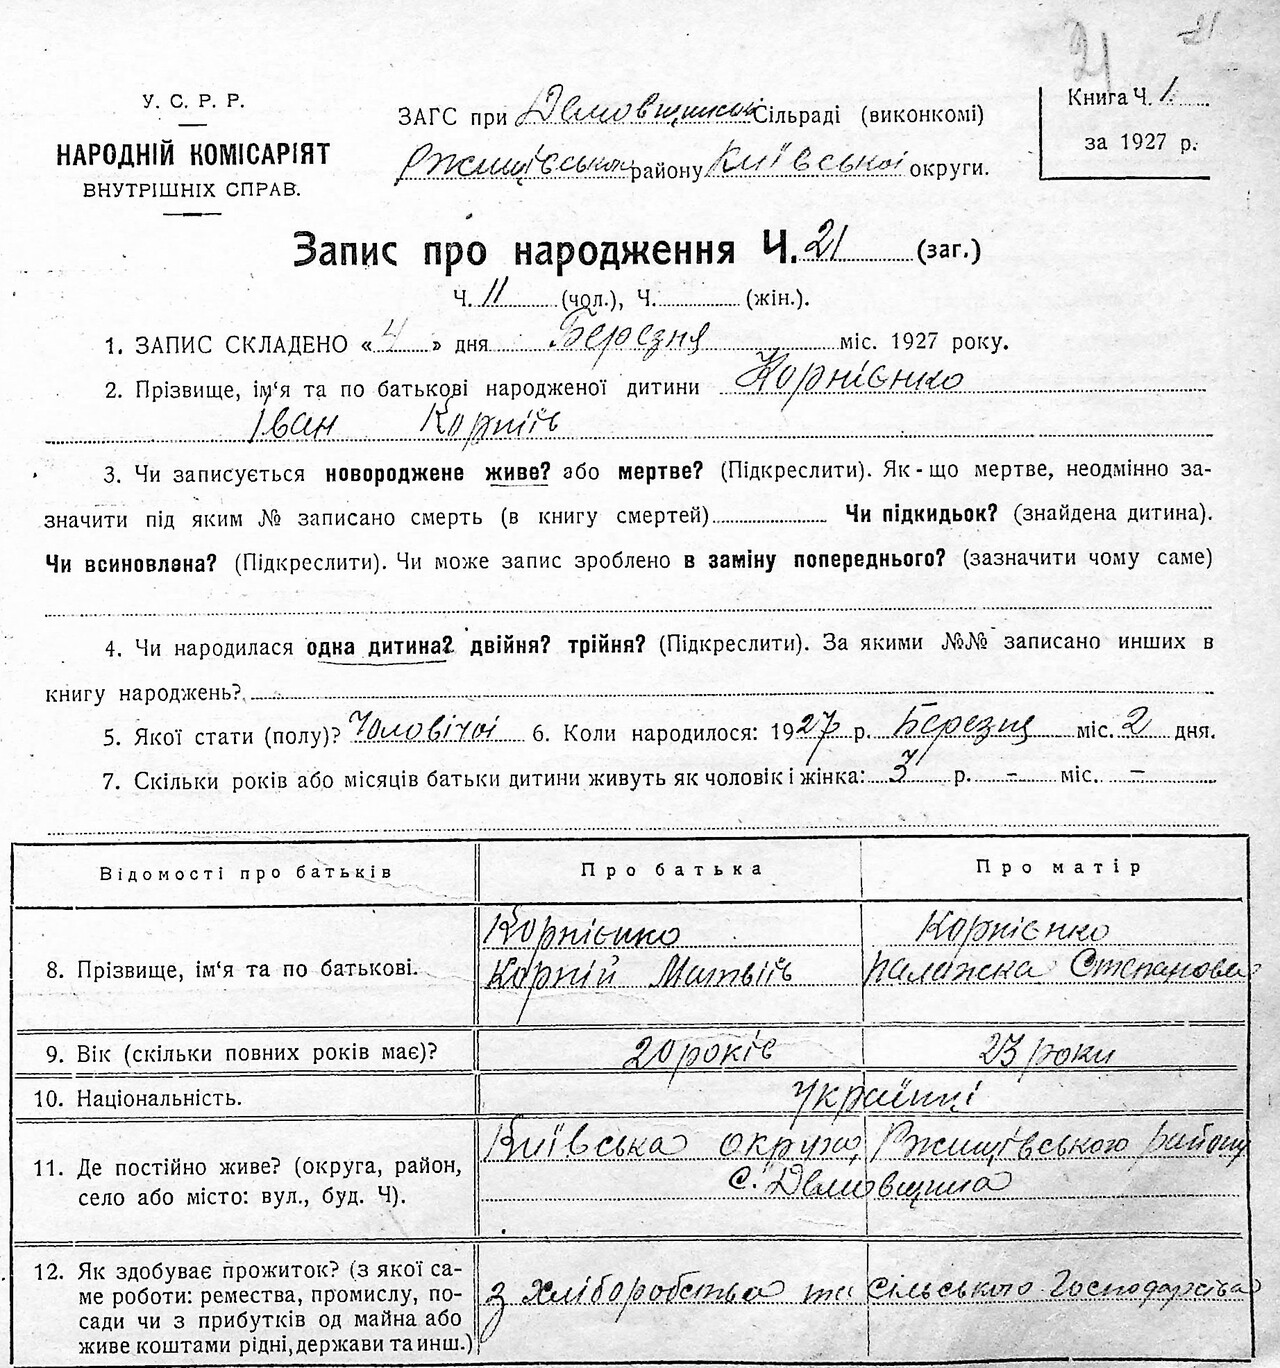 21 21
У. С. Р. Р.
НАРОДНІЙ КОМІСАРІЯТ
ВНУТРІШНІХ СПРАВ.
ЗАГС при Демовщинській Сільраді (виконкомі)
Ржищівського району Київської округи.
Книга Ч. 1
за 1927 р.
Запис про народження Ч. 21 (заг.)
Ч. 11 (чол.), Ч. (жін.).
1. ЗАПИС СКЛАДЕНО « 4 » дня Березня міс. 1927 року.
2. Прізвище, ім'я та по батькові народженої дитини Корнієнко
Іван Корніїв
3. Чи записується новороджене живе? або мертве? (Підкреслити). Як-що мертве, неодмінно за-
значити під яким № записано смерть (в книгу смертей) Чи підкидьок? (знайдена дитина).
Чи всиновлена? (Підкреслити). Чи може запис зроблено в заміну попереднього? (зазначити чому саме)
4. Чи народилася одна дитина? двійня? трійня? (Підкреслити). За якими №№ записано инших в
книгу народжень?
5. Якої статі (полу)? Чоловічої 6. Коли народилося: 1927 р. Березня міс. 2 дня.
7. Скільки років або місяців батьки дитини живуть як чоловік і жінка: 3 р. – міс. –
Відомості про батьків Про батька Про матір
8. Прізвище, ім'я та по батькові. Корнієнко Корній Матвіїв Корнієнко Палажка Степанова
9. Вік (скільки повних років має)? 20 років 23 роки
10. Національність. Українці
11. Де постійно живе? (округа, район,
село або місто: вул., буд. Ч). Київська округа, Ржищівського району
с. Демовщина
12. Як здобуває прожиток? (з якої са-
ме роботи: ремества, промислу, по-
сади чи з прибутків од майна або
живе коштами рідні, держави та инш.) з хліборобства та сільського господарства